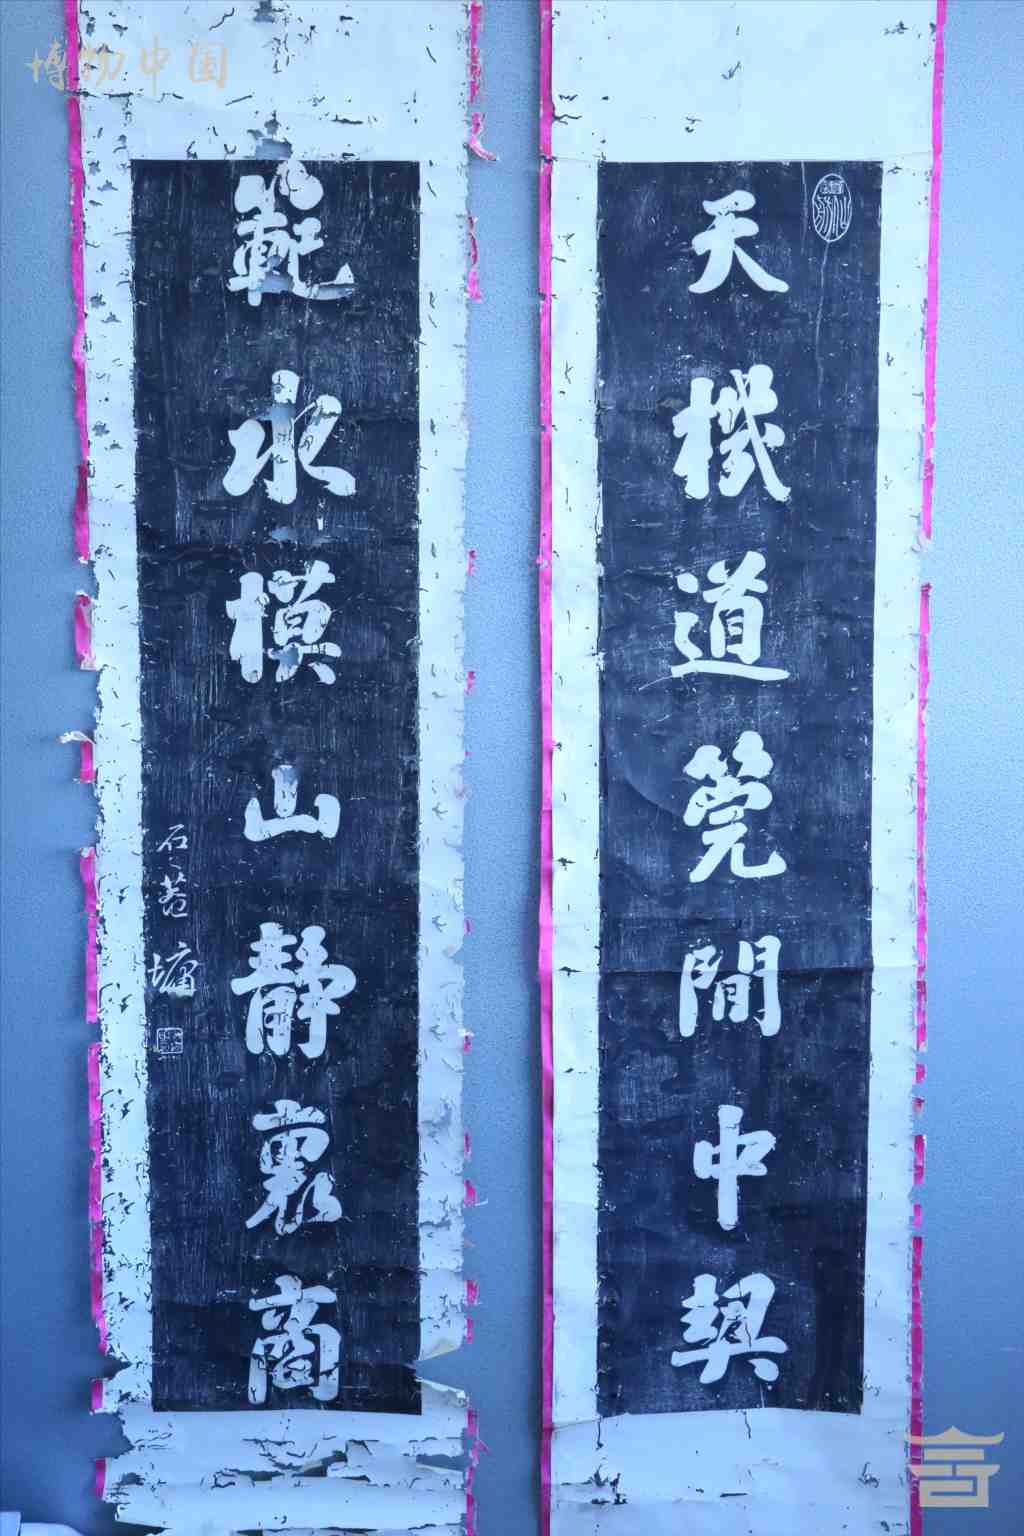 博物中国
天機道筦閒中契
範水模山靜裏商
石菴墉